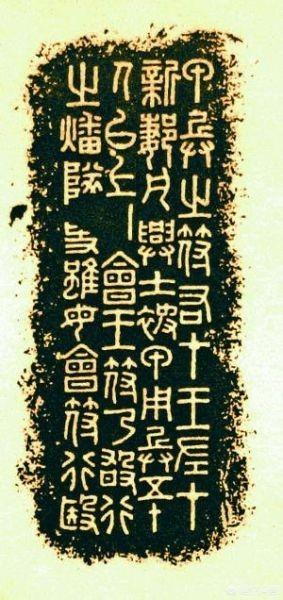 甲兵之符右才王左才
新郪凡興士被甲用兵五十
人以上會王符乃敢行
之燔隊事雖毋會符行殹